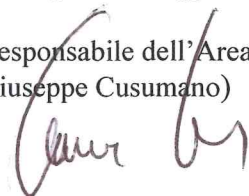 esponsabile dell'Area
iuseppe Cusumano)